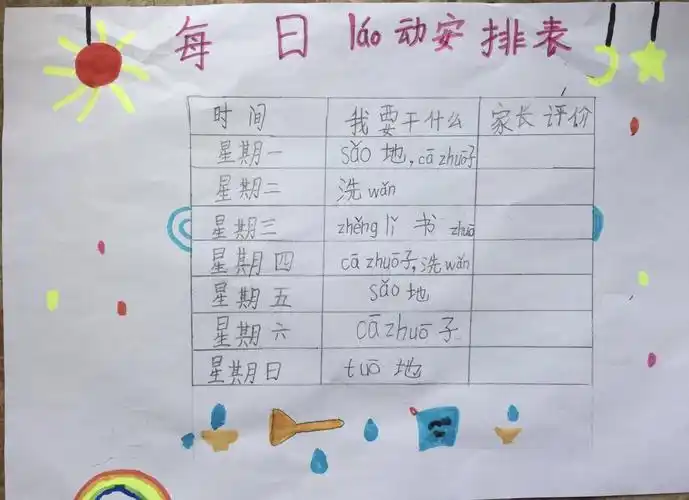 每日láo动安排表
时间 我要干什么 家长评价
星期一 sǎo地,cā zhuō子
星期二 洗wǎn
星期三 zhěng lǐ 书 zhuō
星期四 cā zhuō子,洗wǎn
星期五 sǎo地
星期六 cā zhuō子
星期日 tuō地